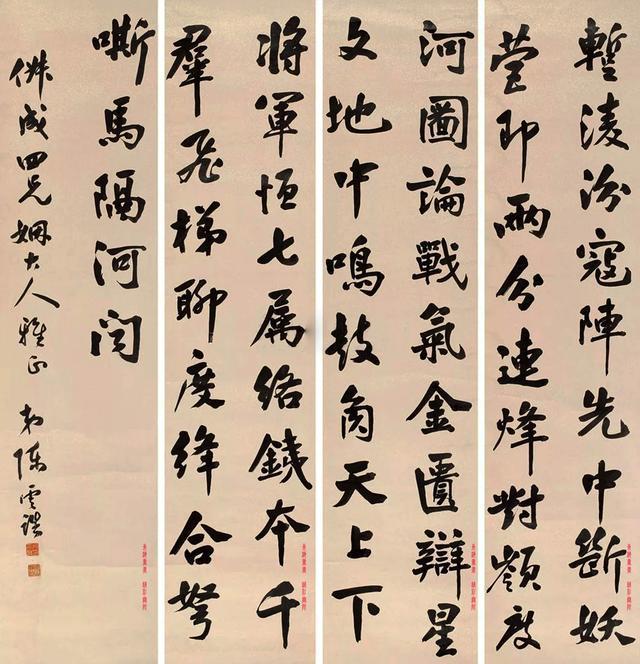 暫淩汾寇陣先中斷妖
營即兩分連烽對嶺度
河圖論戰氣金匱辯星
文地中鳴鼓角天上下
將軍恒七屬絡鐵本千
羣飛梯聊度絳合弩
嘶馬隔河聞
成四兄姻大人雅正 弟陳雲誥